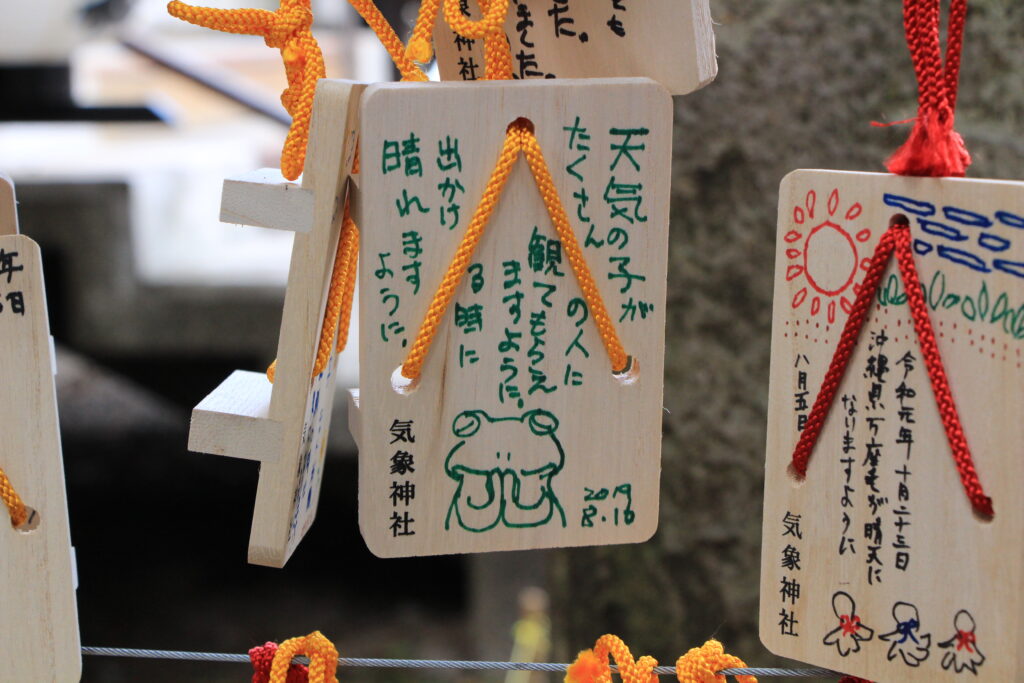 天気の子が
たくさん
の人に
観てもらえ
ますように。
出かけ
る時に
晴れます
ように。
気象神社
2019
8.10
令和元年十月二十三日
沖縄県万座毛が晴天に
なりますように
八月五日
気象神社
した。
ました。
気象神社
年
日